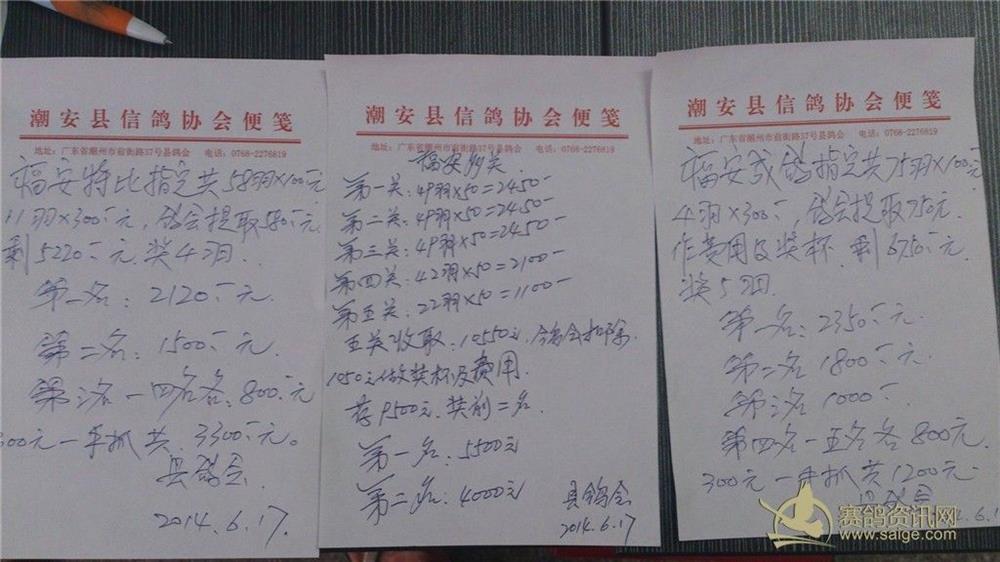 潮安县信鸽协会便笺
地址：广东省潮州市前街路37号县鸽会 电话：0768-2276819
福安特比指定共58羽×100元
11羽×300元，鸽会提取580元
剩5220元.奖4羽.
第一名：2120元
第二名：1500元.
第三名一四名各：800元
300元一手抓共3300元。
县鸽会.
2014.6.17.
潮安县信鸽协会便笺
地址：广东省潮州市前街路37号县鸽会 电话：0768-2276819
福安多关
第一关：49羽×50=2450-
第二关：49羽×50=2450-
第三关：49羽×50=2450
第四关：42羽×50=2100-
第五关：22羽×50=1100-
五关收取：10550元，今鸽会扣除
1050元做奖杯及费用.
存9500元.奖前二名.
第一名：5500元
第二名：4000元
县鸽会
2014.6.17
潮安县信鸽协会便笺
地址：广东省潮州市前街路37号县鸽会 电话：0768-2276819
福安成鸽指定共75羽×100元
4羽×300元 鸽会提取750元.
作费用及奖杯.剩6750元.
奖5羽.
第一名：2350元.
第二名 1800元
第三名 1000
第四名一五名各800元.
300元一手抓共1200元.
县鸽会
赛鸽资讯网
www.saige.com